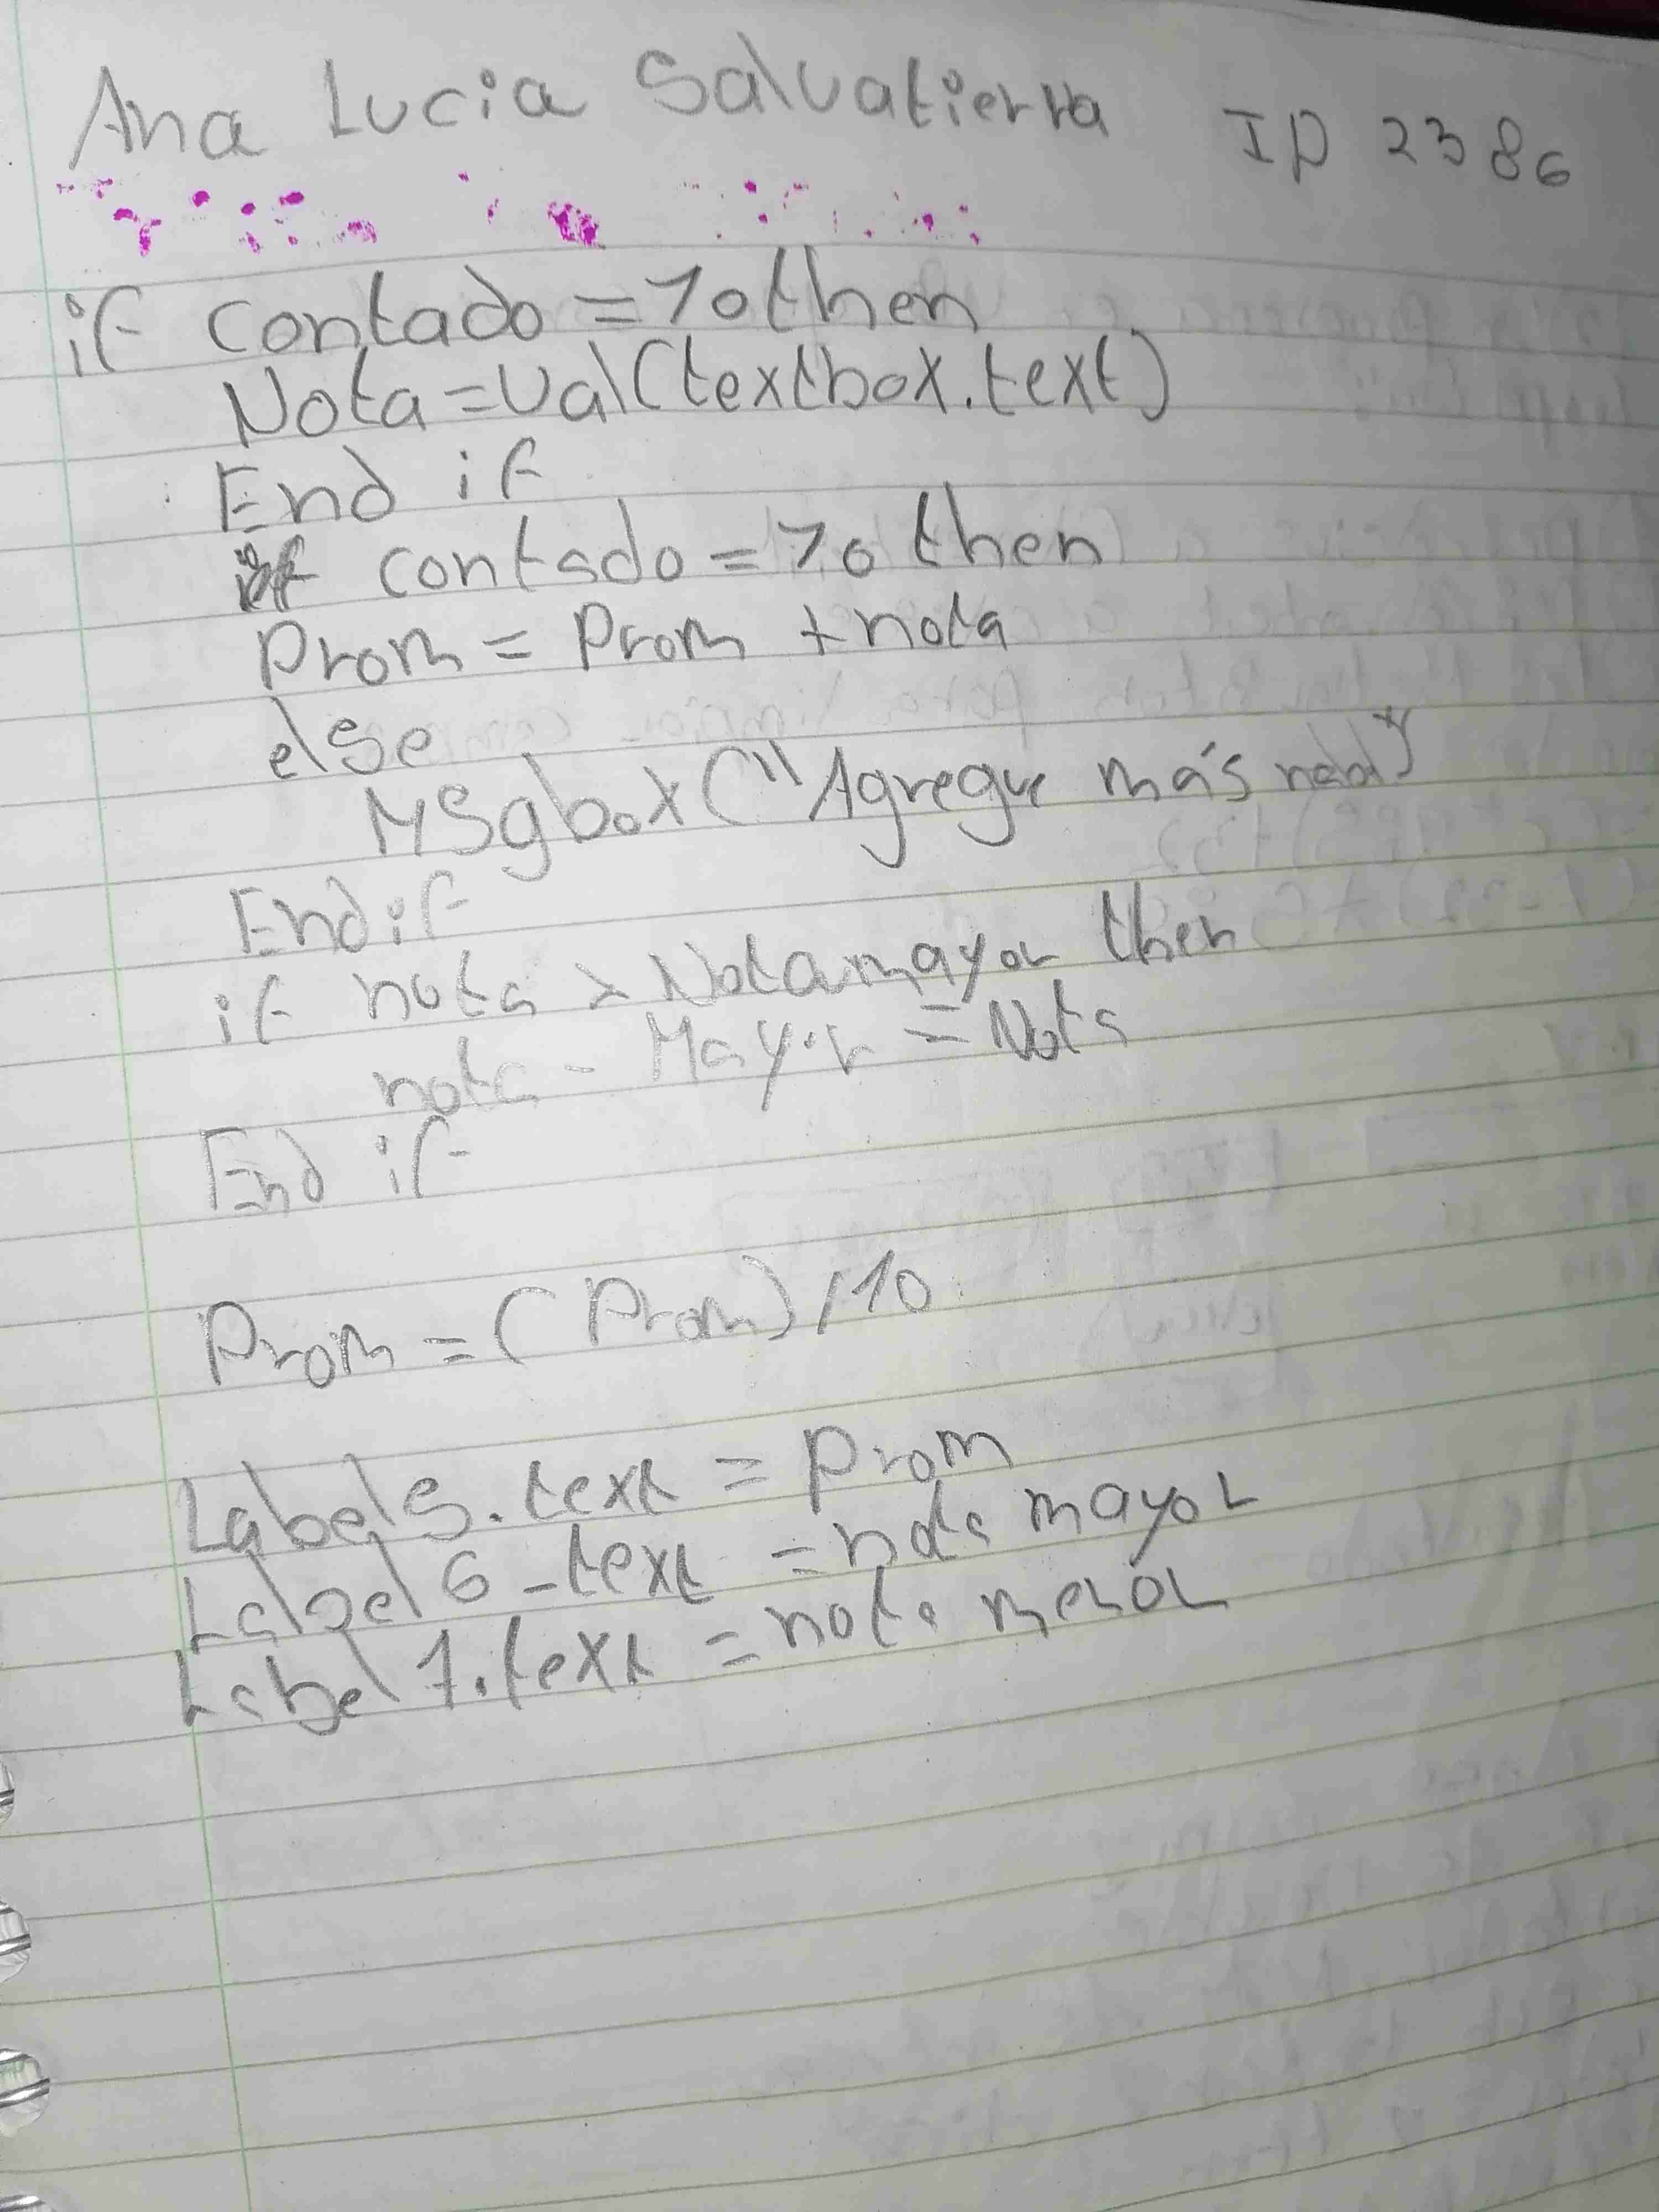 Ana Lucia Salvatierra ID 2386
if contado = 70 then
Nota = Val(textbox.text)
End if
if contado = 70 then
Prom = Prom + nota
else
MSgbox ("Agregue más
End if
if nota > Notamayor then
nota - Mayor = Nota
End if
Prom = (Prom) / 10
Label 5. text = Prom
Label 6 - text = nota mayor
Label 7. text = nota menor